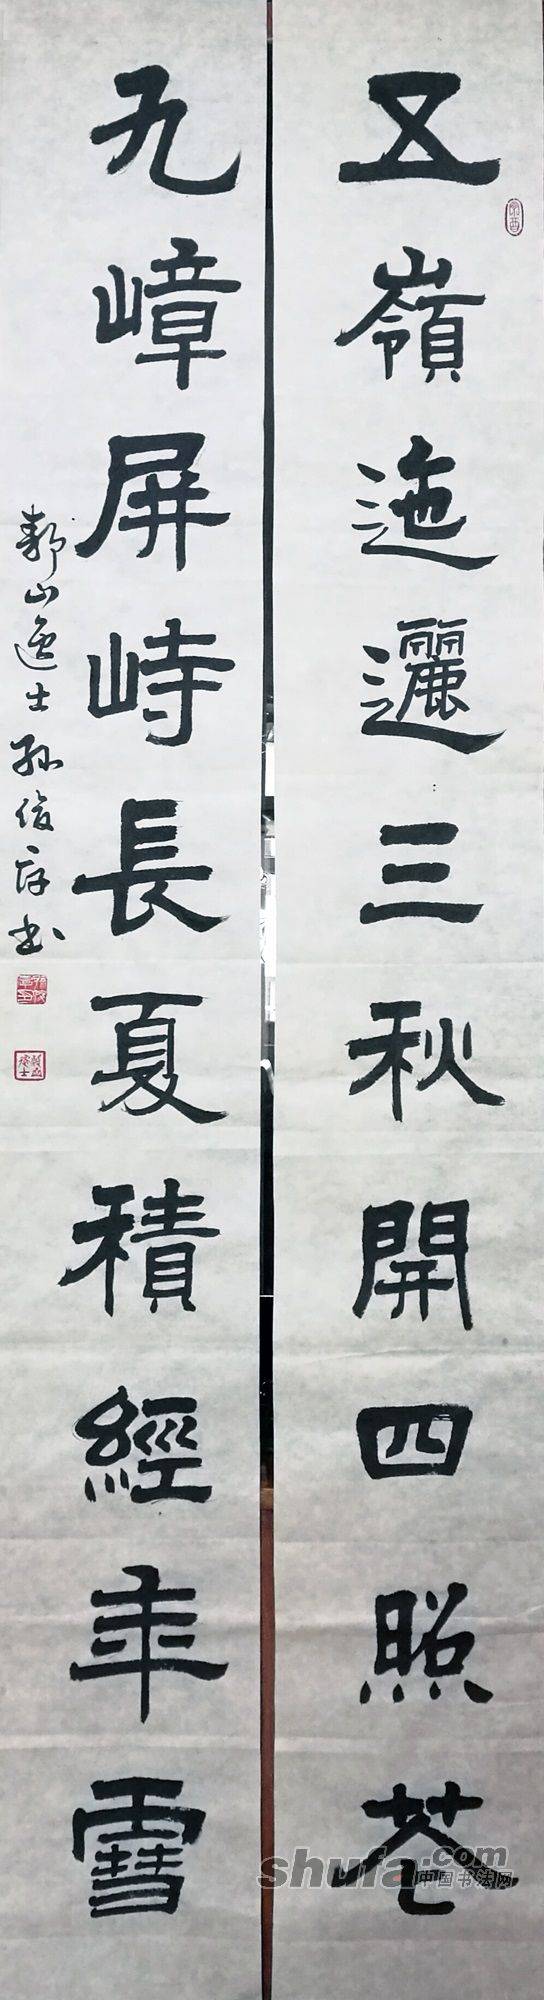 五嶺迤邐三秋開四照花
九嶂屏峙長夏積經年雪
山逸士孫俊存书
shufa.com
中国书法网